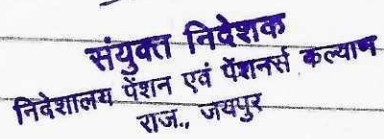 संयुक्त निदेशक
निदेशालय पेंशन एवं पेंशनर्स कल्याण
राज., जयपुर